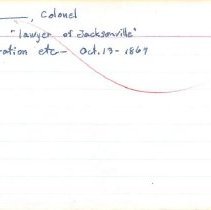 ______, Colonel
"Lawyer of Jacksonville"
ration etc— Oct. 13- 1867